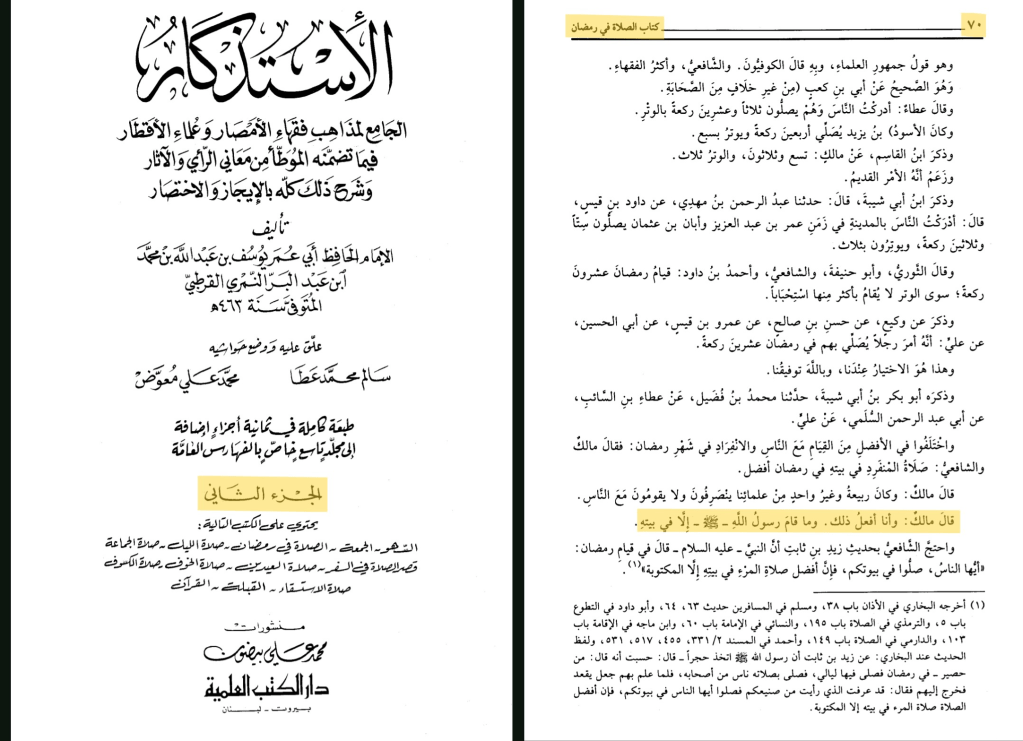 الأستذكار
الجامع لمذاهب فقهاء الأمصار وعلماء الأقطار
فيما تضمنه الموطأ من معاني الرأي والآثار
وشرح ذلك كله بالإيجاز والاختصار
تأليف
الإمام الحافظ أبي عمر يوسف بن عبد الله بن محمد
ابن عبد البر النمري القرطبي
المتوفى سنة ٤٦٣ھ
علق عليه ووضع حواشيه
سالم محمد عطا محمد علي معوض
طبعة كاملة في ثمانية أجزاء إضافة
إلى مجلد تاسع خاص بالفهارس العامة
الجزء الثاني
يحتوي على الكتب التالية:
السهو - الجمعة - الصلاة في رمضان - صلاة الليل - صلاة الجماعة
قصر الصلاة في السفر - صلاة العيدين - صلاة الخوف - صلاة الكسوف
صلاة الاستسقاء - القبلة - القرآن
منشورات
محمد علي بيضون
دار الكتب العلمية
بيروت - لبنان
٧٠ كتاب الصلاة في رمضان
وهو قولُ جمهورِ العلماءِ، وبِهِ قالَ الكوفيُّونَ. والشَّافعيُّ، وأكثرُ الفقهاءِ.
وَهُوَ الصَّحيحُ عَنْ أبي بنِ كعبٍ (مِنْ غيرِ خلَافٍ مِنَ الصَّحَابَةِ.
وقالَ عطاءٌ: أدركْتُ النَّاسَ وَهُمْ يصلُّون ثلاثاً وعشرينَ ركعةً بالوتْرِ.
وكانَ الأسودُ) بنُ يزيد يُصَلِّي أربعينَ ركعةً ويوترُ بسبع.
وذكرَ ابنُ القاسِمِ، عَنْ مالكٍ: تسع وثلاثونَ، والوترُ ثلاث.
وزَعَمَ أنَّهُ الأمْر القديمُ.
وذكرَ ابنُ أبي شيبةَ، قالَ: حدثنا عبدُ الرحمن بنُ مهدي، عن داود بنِ قيسٍ،
قالَ: أدْرَكْتُ النَّاسَ بالمدينةِ في زَمَنِ عمر بن عبد العزيز وأبان بن عثمان يصلُّون سِتّاً
وثلاثينَ ركعةً، ويوتِرُون بثلاث.
وقالَ الثَّوريُّ، وأبو حنيفةَ، والشافعيُّ، وأحمدُ بنُ داود: قيامُ رمضانَ عشرونَ
ركعةً؛ سوى الوتر لا يُقامُ بأكثر مِنها اسْتِحْبَاباً.
وذكرَ عن وكيعٍ، عن حسنِ بنِ صالحٍ، عن عمرو بن قيسٍ، عن أبي الحسين،
عن عليٍّ: أنَّهُ أمرَ رجلاً يُصَلِّي بهم في رمضان عشرينَ ركعةً.
وهذا هُوَ الاختيارُ عِنْدَنا، وباللَّهَ توفيقُنا.
وذكرَه أبو بكر بنُ أبي شيبةَ، حدَّثنا محمدُ بنُ فُضَيل، عَنْ عطاءِ بنِ السَّائبِ،
عن أبي عبد الرحمن السُّلَمي، عَنْ عليٍّ.
واخْتَلَفُوا في الأفضلِ مِنَ القِيَامِ مَعَ النَّاسِ والانْفِرَادِ في شَهْرِ رمضان: فقالَ مالكٌ
والشافعيُّ: صَلَاةُ المْنفَرِدِ في بيتهِ في رمضان أفضل.
قالَ مالكٌ: وكانَ ربيعةُ وغيرُ واحدٍ مِنْ علمائِنا يَنْصَرِفُونَ ولا يقومُونَ مَعَ النَّاسِ.
قالَ مالكٌ: وأنا أفعلُ ذلك. وما قامَ رسولُ اللَّهِ ـ ﷺ ـ إلَّا في بيتهِ.
واحتجَّ الشَّافعيُّ بحديثِ زيدِ بنِ ثابتٍ أنَّ النبيَّ ـ عليه السلام ـ قالَ في قيامِ رمضان:
«أيُّها الناسُ، صلُّوا في بيوتكم، فإنَّ أفضل صلاةِ المرْءِ في بيتِهِ إلَّا المكتوبة»(١).
(١) أخرجه البخاري في الأذان باب ٣٨، ومسلم في المسافرين حديث ٦٣، ٦٤، وأبو داود في التطوع
باب ٥، والترمذي في الصلاة باب ١٩٥، والنسائي في الإمامة باب ٦٠، وابن ماجه في الإقامة باب
١٠٣، والدارمي في الصلاة باب ١٤٩، وأحمد في المسند ٢/٣٣١، ٤٥٥، ٥١٧، ٥٣١، ولفظ
الحديث عند البخاري: عن زيد بن ثابت أن رسول الله ﷺ اتخذ حجراً ـ قال: حسبت أنه قال: من
حصير ـ في رمضان فصلى فيها ليالي، فصلى بصلاته ناس من أصحابه، فلما علم بهم جعل يقعد
فخرج إليهم فقال: قد عرفت الذي رأيت من صنيعكم فصلوا أيها الناس في بيوتكم، فإن أفضل
الصلاة صلاة المرء في بيته إلا المكتوبة.